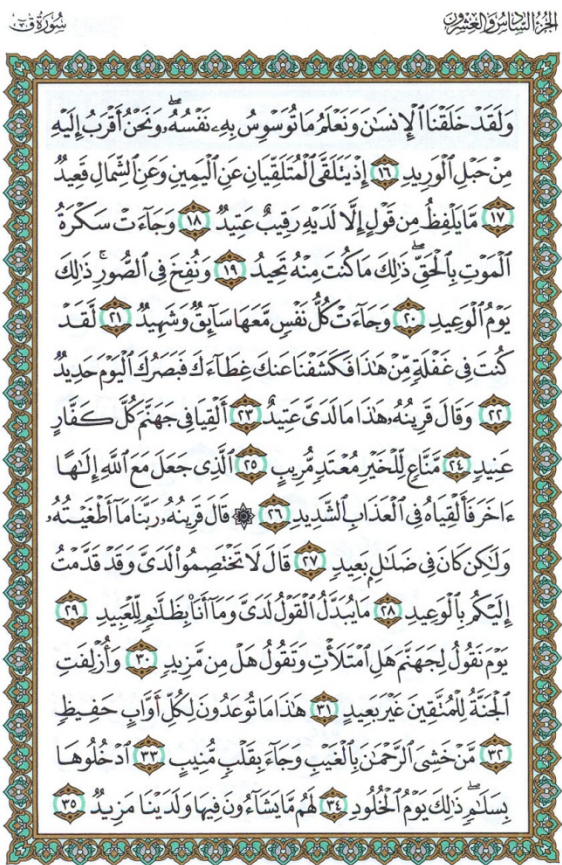 الجزء السادس والعشرون
سورة ق
وَلَقَدْ خَلَقْنَا ٱلْإِنسَٰنَ وَنَعْلَمُ مَا تُوَسْوِسُ بِهِۦ نَفْسُهُۥ ۖ وَنَحْنُ أَقْرَبُ إِلَيْهِ
مِنْ حَبْلِ ٱلْوَرِيدِ ١٦ إِذْ يَتَلَقَّى ٱلْمُتَلَقِّيَانِ عَنِ ٱلْيَمِينِ وَعَنِ ٱلشِّمَالِ قَعِيدٌ
١٧ مَّا يَلْفِظُ مِن قَوْلٍ إِلَّا لَدَيْهِ رَقِيبٌ عَتِيدٌ ١٨ وَجَآءَتْ سَكْرَةُ
ٱلْمَوْتِ بِٱلْحَقِّ ۖ ذَٰلِكَ مَا كُنتَ مِنْهُ تَحِيدُ ١٩ وَنُفِخَ فِى ٱلصُّورِ ۚ ذَٰلِكَ
يَوْمُ ٱلْوَعِيدِ ٢٠ وَجَآءَتْ كُلُّ نَفْسٍ مَّعَهَا سَآئِقٌ وَشَهِيدٌ ٢١ لَّقَدْ
كُنتَ فِى غَفْلَةٍ مِّنْ هَٰذَا فَكَشَفْنَا عَنكَ غِطَآءَكَ فَبَصَرُكَ ٱلْيَوْمَ حَدِيدٌ
٢٢ وَقَالَ قَرِينُهُۥ هَٰذَا مَا لَدَىَّ عَتِيدٌ ٢٣ أَلْقِيَا فِى جَهَنَّمَ كُلَّ كَفَّارٍ
عَنِيدٍ ٢٤ مَّنَّاعٍ لِّلْخَيْرِ مُعْتَدٍ مُّرِيبٍ ٢٥ ٱلَّذِى جَعَلَ مَعَ ٱللَّهِ إِلَٰهًا
ءَاخَرَ فَأَلْقِيَاهُ فِى ٱلْعَذَابِ ٱلشَّدِيدِ ٢٦ ۞ قَالَ قَرِينُهُۥ رَبَّنَا مَآ أَطْغَيْتُهُۥ
وَلَٰكِن كَانَ فِى ضَلَٰلٍۭ بَعِيدٍ ٢٧ قَالَ لَا تَخْتَصِمُوا۟ لَدَىَّ وَقَدْ قَدَّمْتُ
إِلَيْكُم بِٱلْوَعِيدِ ٢٨ مَا يُبَدَّلُ ٱلْقَوْلُ لَدَىَّ وَمَآ أَنَا۠ بِظَلَّٰمٍ لِّلْعَبِيدِ ٢٩
يَوْمَ نَقُولُ لِجَهَنَّمَ هَلِ ٱمْتَلَأْتِ وَتَقُولُ هَلْ مِن مَّزِيدٍ ٣٠ وَأُزْلِفَتِ
ٱلْجَنَّةُ لِلْمُتَّقِينَ غَيْرَ بَعِيدٍ ٣١ هَٰذَا مَا تُوعَدُونَ لِكُلِّ أَوَّابٍ حَفِيظٍ
٣٢ مَّنْ خَشِىَ ٱلرَّحْمَٰنَ بِٱلْغَيْبِ وَجَآءَ بِقَلْبٍ مُّنِيبٍ ٣٣ ٱدْخُلُوهَا
بِسَلَٰمٍ ۖ ذَٰلِكَ يَوْمُ ٱلْخُلُودِ ٣٤ لَهُم مَّا يَشَآءُونَ فِيهَا وَلَدَيْنَا مَزِيدٌ ٣٥